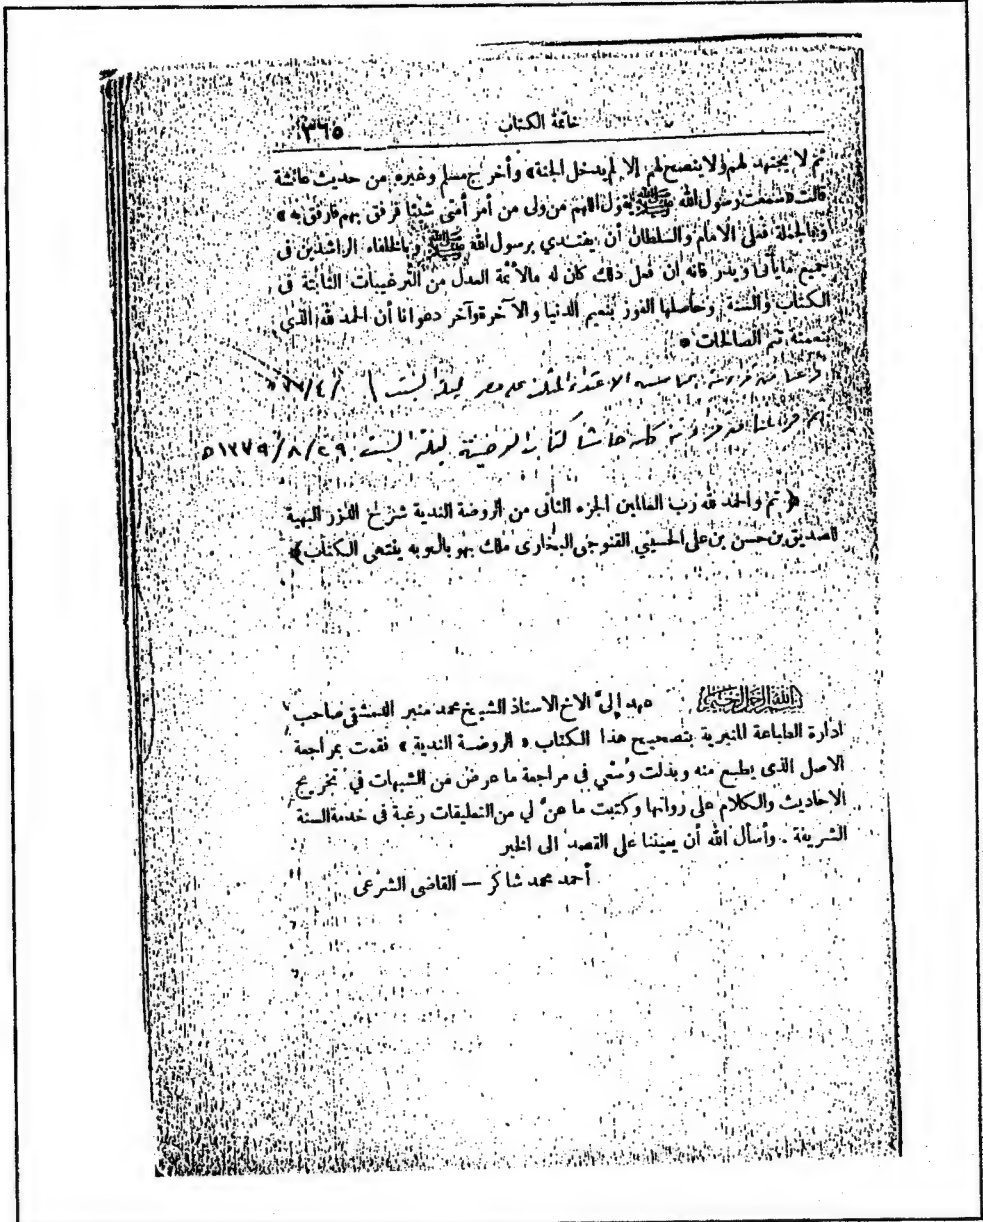 خاتمة الكتاب ٣٦٥
ثم لا يجتهد لهم ولا ينصح لهم إلا لم يدخل الجنة» وأخرج مسلم وغيره من حديث عائشة
قالت «سمعت رسول الله ﷺ يقول اللهم من ولى من أمر أمتى شيئا فرفق بهم فارفق به»
وبالجملة فعلى الامام والسلطان أن يقتدي برسول الله ﷺ وبالخلفاء الراشدين فى
جميع ما يأتى ويذر فانه ان فعل ذلك كان له مالأئمة العدل من الترغيبات الثابتة فى
الكتاب والسنة وحاصلها الفوز بنعيم الدنيا والآخرة وآخر دعوانا أن الحمد لله الذى
بنعمته تتم الصالحات *
من قراءته الاعتداء على مصر ليلة السبت / ٤ /
من قراءته كله ليلة السبت ٢٩/٨/١٣٧٩ ه
﴿ تم والحمد لله رب العالمين الجزء الثانى من الروضة الندية شرح الدرر البهية
لصديق بن حسن بن على الحسيني القنوجى البخارى ملك بهوبال وبه ينتهى الكتاب ﴾
عهد إلىّ الاخ الاستاذ الشيخ محمد منير الدمشقى صاحب
ادارة الطباعة المنيرية بتصحيح هذا الكتاب « الروضة الندية » فقمت بمراجعة
الاصل الذى يطبع منه وبذلت وسعي فى مراجعة ما عرض من الشبهات في تخريج
الاحاديث والكلام على رواتها وكتبت ما عنّ لي من التعليقات رغبة فى خدمة السنة
الشريفة . وأسأل الله أن يعيننا على القصد الى الخير
أحمد محمد شاكر — القاضى الشرعى